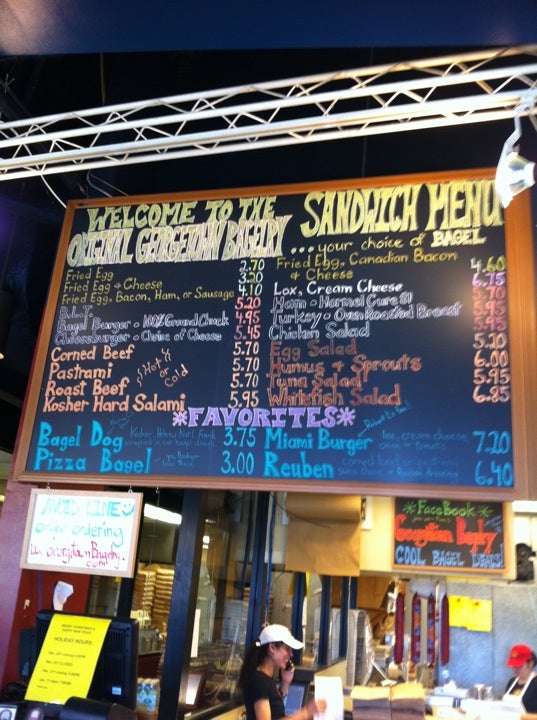 WELCOME TO THE
ORIGINAL GEORGETOWN BAGELRY
SANDWICH MENU
...your choice of BAGEL
Fried Egg 2.70
Fried Egg & Cheese 3.20
Fried Egg, Bacon, Ham, or Sausage 4.10
B.L.T. 5.20
Bagel Burger - 100% Ground Chuck 4.95
Cheeseburger - Choice of Cheese 5.45
Corned Beef 5.70
Pastrami 5.70
Roast Beef 5.70
Kosher Hard Salami 5.95
Hot or Cold
Fried Egg, Canadian Bacon
& Cheese 4.60
Lox, Cream Cheese
Ham - Hormel Cure 81
Turkey - Oven Roasted Breast
Chicken Salad
Egg Salad 5.20
Humus + Sprouts 6.00
Tuna Salad 5.95
Whitefish Salad 6.85
*FAVORITES*
Bagel Dog 3.75
Pizza Bagel 3.00
Miami Burger lox, cream cheese 7.20
onion + tomato
Reuben 6.40
AVOID LINE
online ordering
GeorgetownBagelry.
com
HOLIDAY HOURS
*FaceBook*
Georgetown Bagelry
COOL BAGEL DEALS!